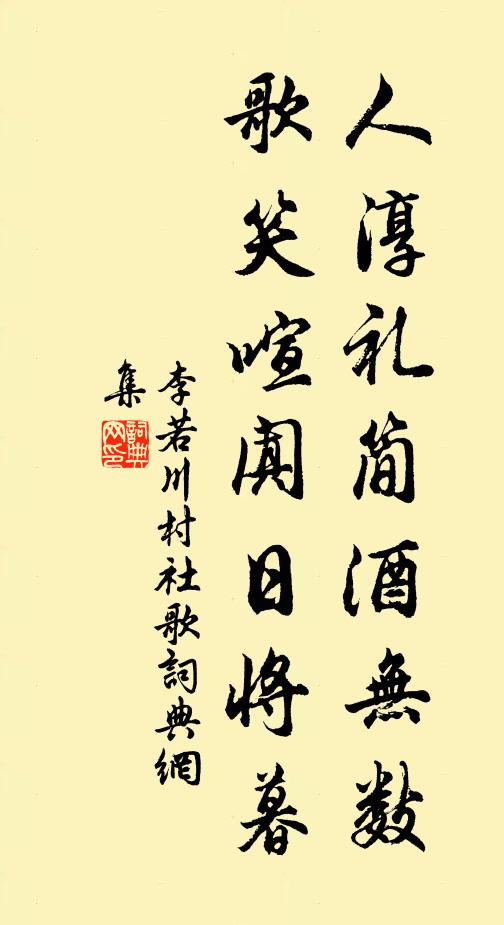 人淳礼简酒無数
歌笑喧阗日将暮
李若川村社歌詞典網
集
詞典
网印